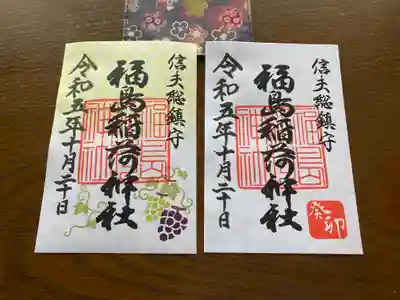 信夫総鎮守
福島稲荷神社
令和五年十月二十日
信夫総鎮守
福島稲荷神社
令和五年十月二十日
癸卯